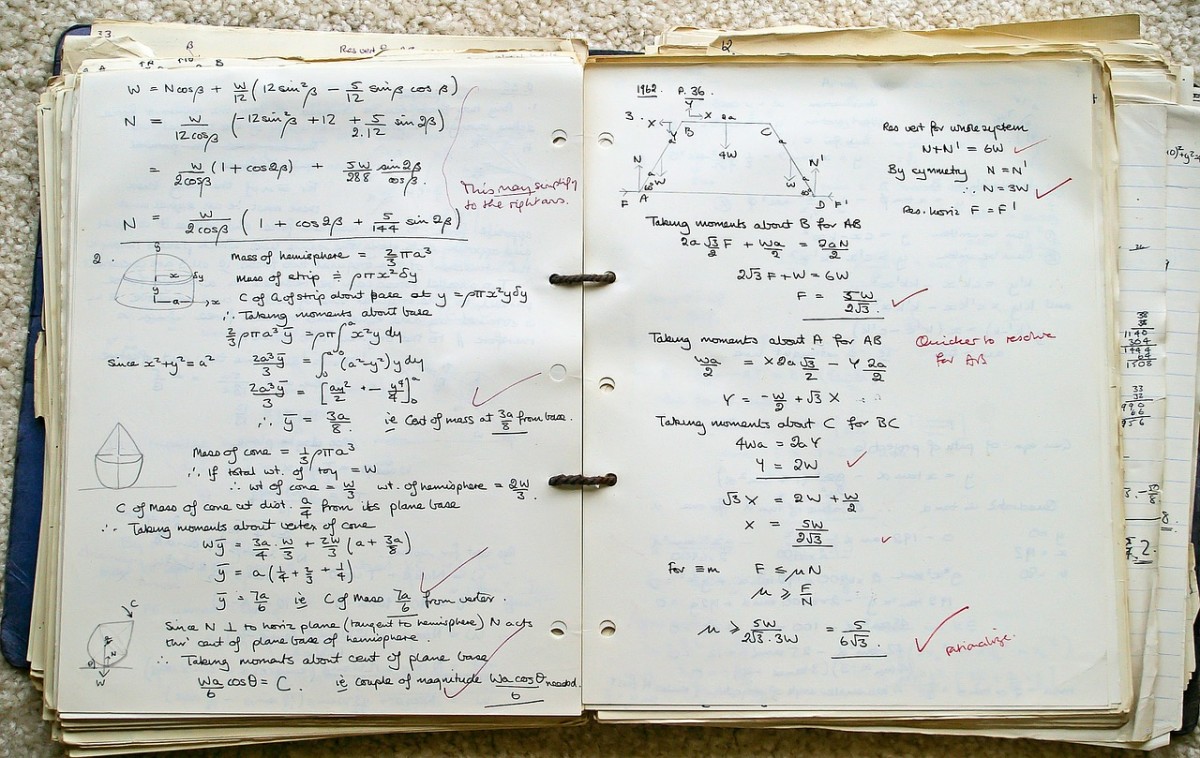 33
B
Res vert
W = Ncosβ + W/12 (12sin²β − 5/12 sinβ cosβ)
N = W/12cosβ (−12sin²β + 12 + 5/2.12 sin2β)
= W/2cosβ (1 + cos2β) + 5W/288 sin2β/cosβ.
This may simplify
to the right ans.
N = W/2cosβ (1 + cos2β + 5/144 sin2β)
2.
Mass of hemisphere = 2/3 πa³
Mass of strip ≑ ρπx²δy
C of G of strip about base at y = ρπx²yδy
∴ Taking moments about base
2/3 ρπa³ȳ = ρπ∫x²y dy
Since x²+y² = a² 2a³ȳ/3 = ∫(a²−y²)y dy
2a³ȳ/3 = [ay²/2 − y⁴/4]
∴ ȳ = 3a/8. ie Cent of mass at 3a/8 from base.
Mass of cone = 1/3 ρπa³
∴ If total wt. of toy = W
∴ wt of cone = W/3 wt. of hemisphere = 2W/3.
C of Mass of cone at dist. a/4 from its plane base
∴ Taking moments about vertex of cone
Wȳ = 3a/4 . W/3 + 2W/3 (a + 3a/8)
ȳ = a(1/4 + 2/3 + 1/4)
ȳ = 7a/6 ie C of Mass 7a/6 from vertex.
C
N
θ
W
Since N ⊥ to horiz plane (tangent to hemisphere) N acts
thro' cent of plane base of hemisphere.
∴ Taking moments about cent of plane base
Wa/6 cosθ = C. ie couple of magnitude Wa cosθ/6 needed.
1962. P. 36.
3.
Y
X X 2a
B C
4W
N W W N'
F A D F'
Res vert for whole system
N+N' = 6W
By symmetry N = N'
∴ N = 3W
Res. horiz F = F'
Taking moments about B for AB
2a√3/2 F + Wa/2 = 2aN/2
2√3F + W = 6W
F = 5W/2√3.
Taking moments about A for AB
Quicker to resolve
for AB
Wa/2 = X2a√3/2 − Y 2a/2
Y = −W/2 + √3 X
Taking moments about C for BC
4Wa = 2aY
Y = 2W
√3 X = 2W + W/2
X = 5W/2√3
for ≡m F ≤ μN
μ ≥ F/N
μ ≥ 5W/2√3.3W = 5/6√3
rationalize.
38
38
1140
304
1444
1508
33
990
66
2.